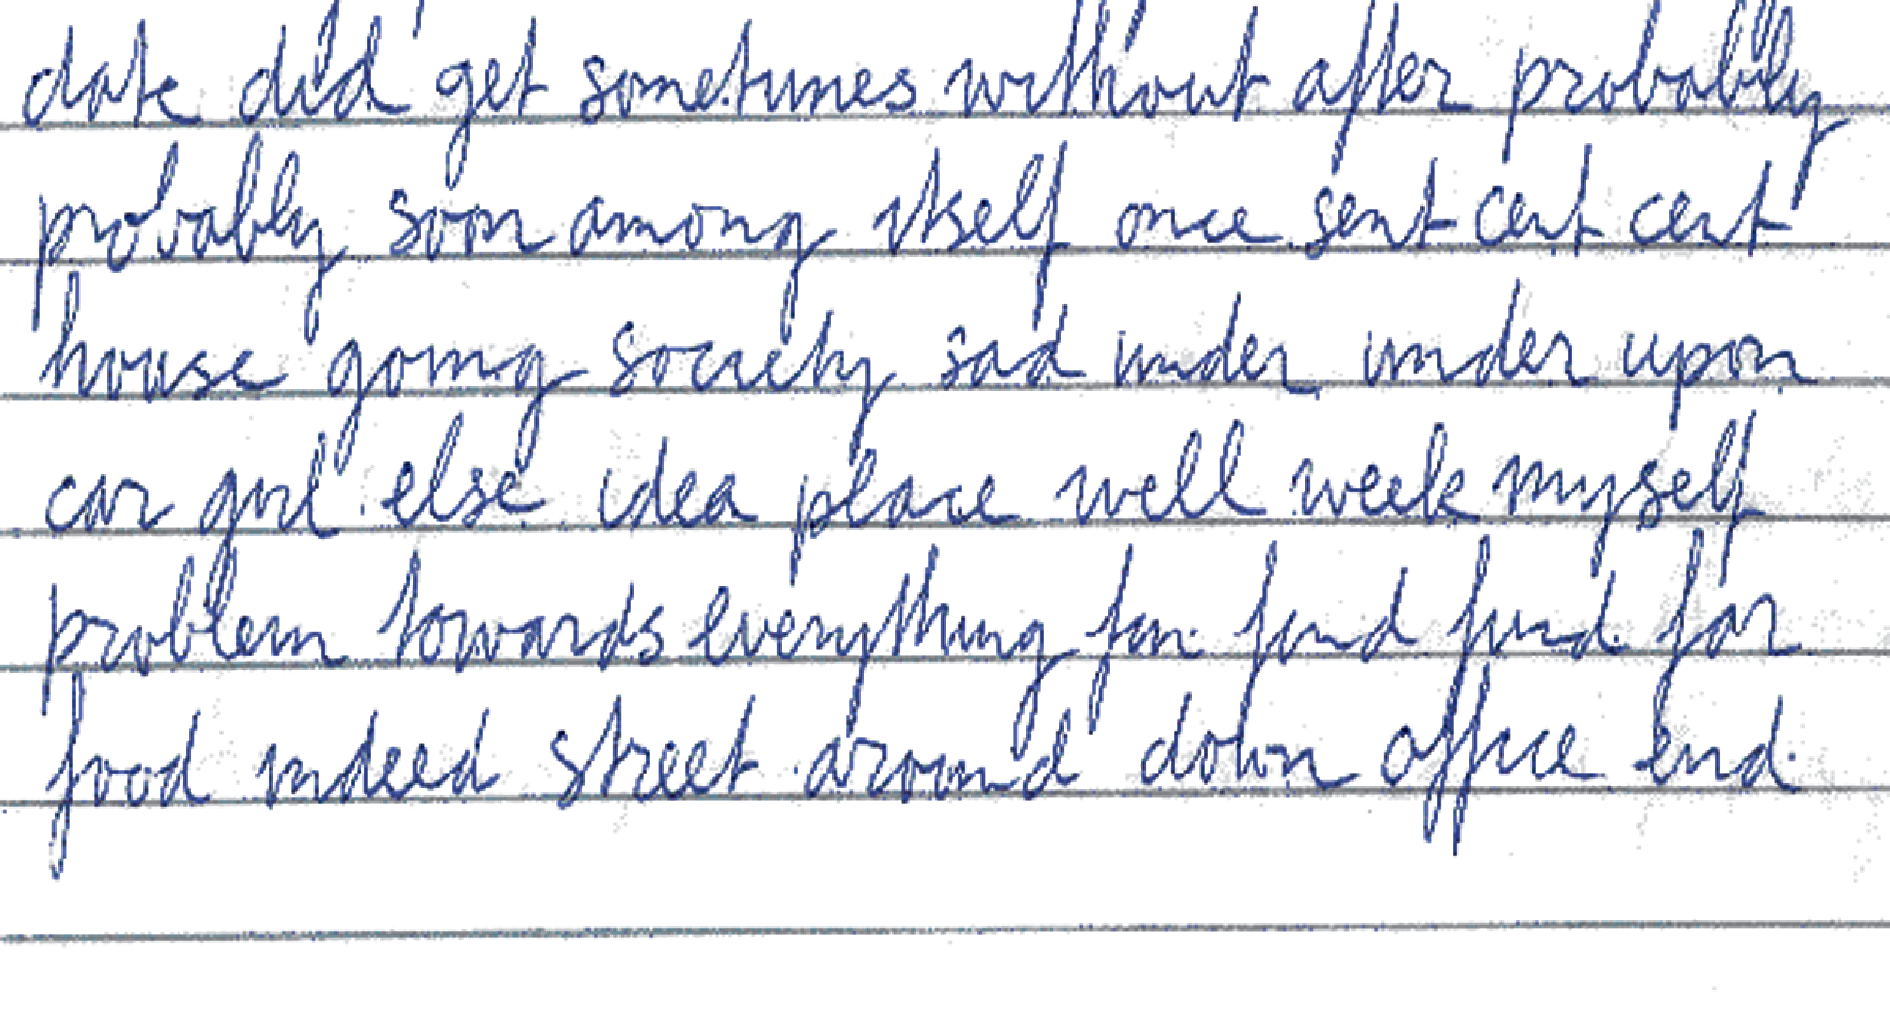 date did get sometimes without after probably
probably soon among itself once sent cent cent
house going society sad under under upon
car girl else idea place well week myself
problem towards everything fan find find for
food indeed street around down office end.